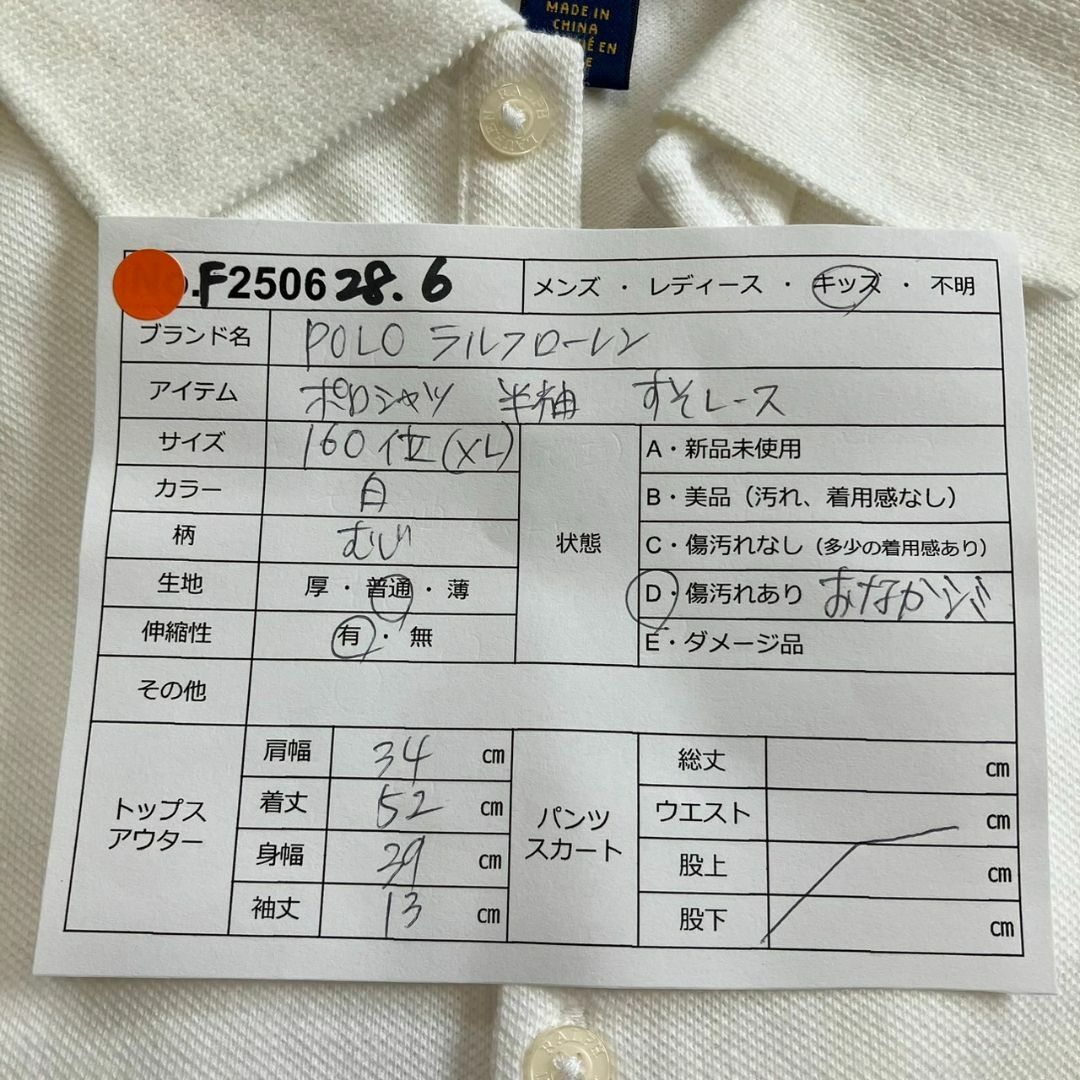 MADE IN
CHINA
É EN
E
RALPH
LAUREN
No.F250628.6 メンズ ・ レディース ・ キッズ ・ 不明
ブランド名 POLO ラルフローレン
アイテム ポロシャツ 半袖 すそレース
サイズ 160位(XL)
カラー 白
柄 むじ
生地 厚 ・ 普通 ・ 薄
伸縮性 有 ・ 無
状態
A・新品未使用
B・美品（汚れ、着用感なし）
C・傷汚れなし（多少の着用感あり）
D・傷汚れあり おなかシミ
E・ダメージ品
その他
トップス
アウター
肩幅 34 cm
着丈 52 cm
身幅 39 cm
袖丈 13 cm
パンツ
スカート
総丈 cm
ウエスト cm
股上 cm
股下 cm
RALPH